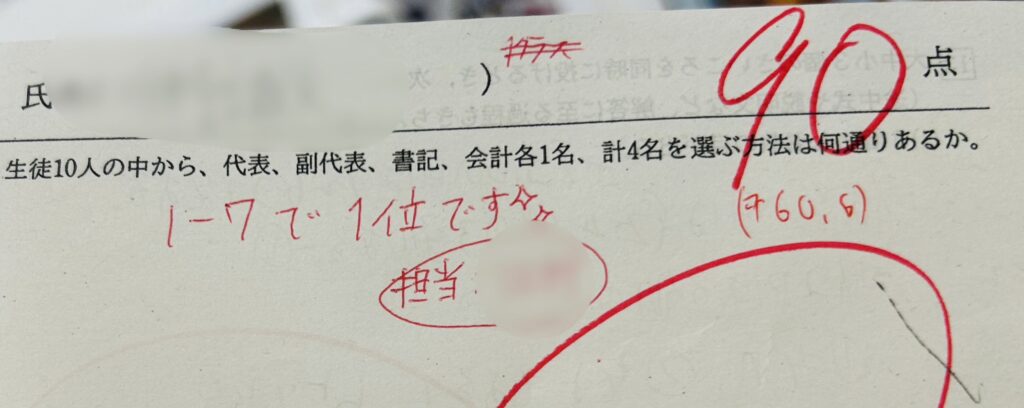 氏
)
90 点
生徒10人の中から、代表、副代表、書記、会計各1名、計4名を選ぶ方法は何通りあるか。
1-7で1位です
(平60.8)
担当